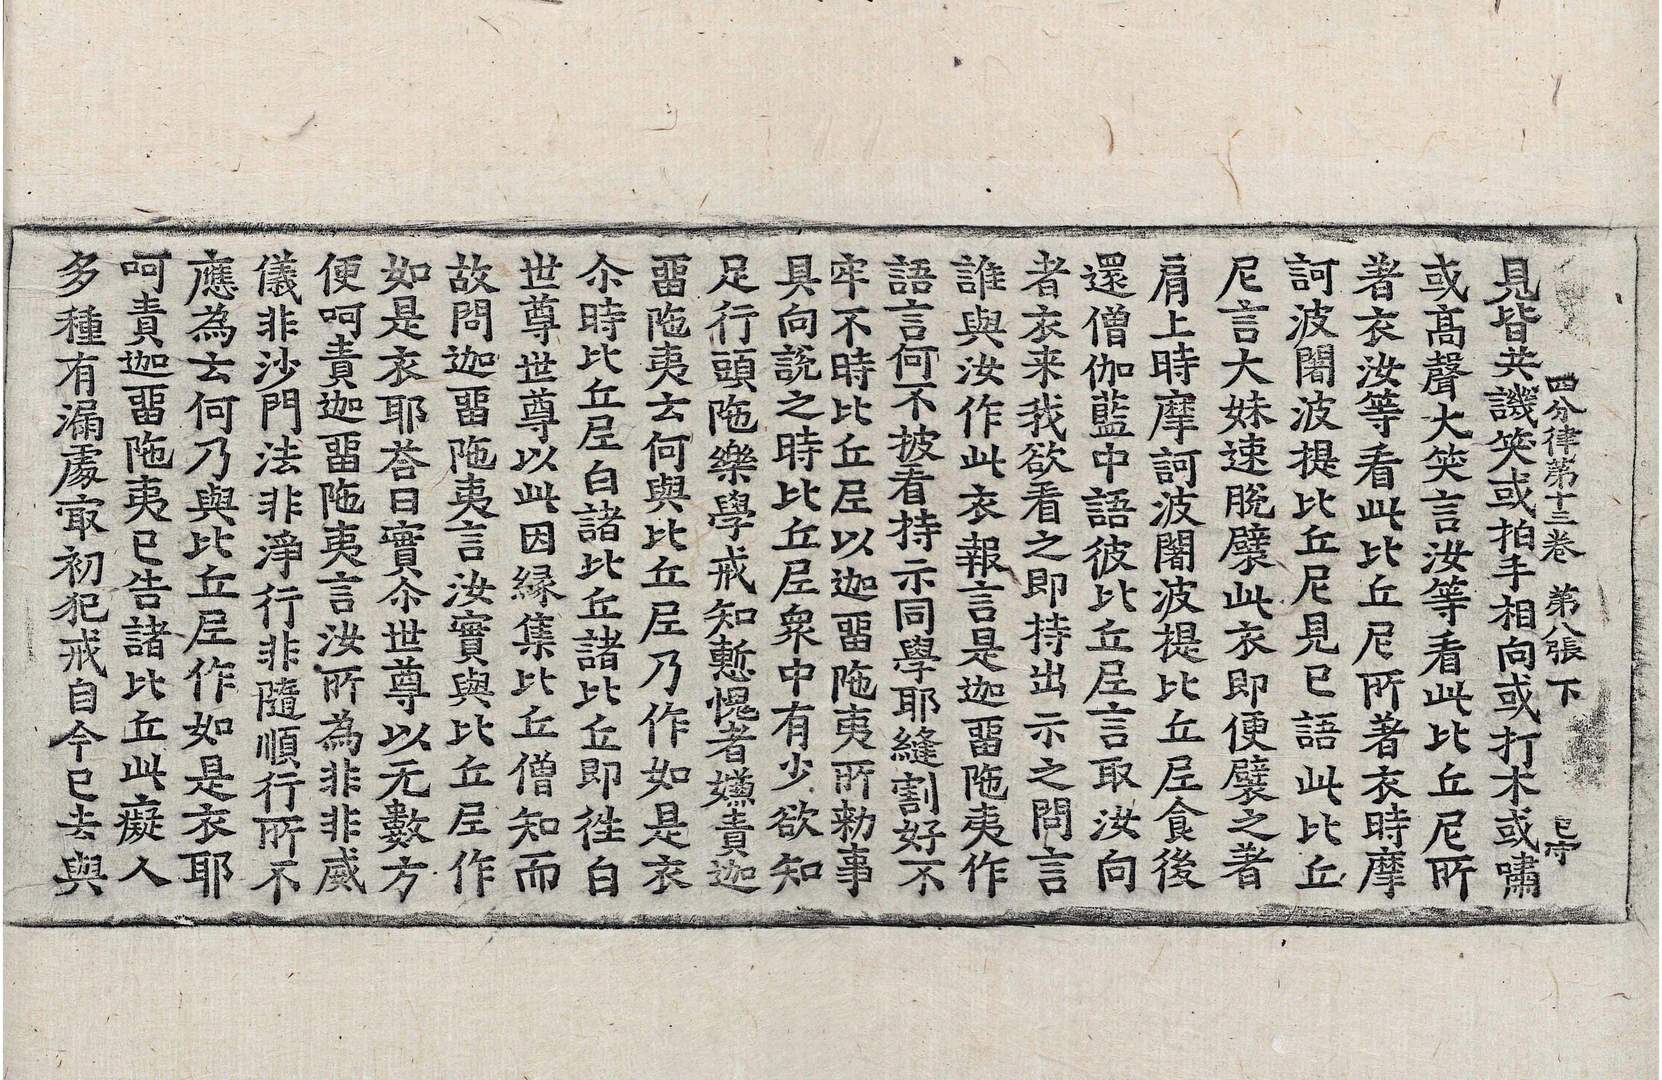 四分律第十三卷 第八張 下
見皆共譏笑或拍手相向或打木或嘯
或髙聲大笑言汝等看此比丘尼所
著衣汝等看此比丘尼所著衣時摩
訶波闍波提比丘尼見已語此比丘
尼言大妹速脫襞此衣即便襞之著
肩上時摩訶波闍波提比丘尼食後
還僧伽藍中語彼比丘尼言取汝向
者衣来我欲看之即持出示之問言
誰與汝作此衣報言是迦留陁夷作
語言何不披看持示同學耶縫割好不
牢不時比丘尼以迦留陁夷所勑事
具向說之時比丘尼衆中有少欲知
足行頭陁樂學戒知慙愧者嫌責迦
留陁夷云何與比丘尼乃作如是衣
尒時比丘尼白諸比丘諸比丘即徃白
世尊世尊以此因縁集比丘僧知而
故問迦留陁夷言汝實與比丘尼作
如是衣耶荅曰實尒世尊以无數方
便呵責迦留陁夷言汝所為非非威
儀非沙門法非淨行非隨順行所不
應為云何乃與比丘尼作如是衣耶
呵責迦留陁夷已告諸比丘此癡人
多種有漏處㝡初犯戒自今已去與